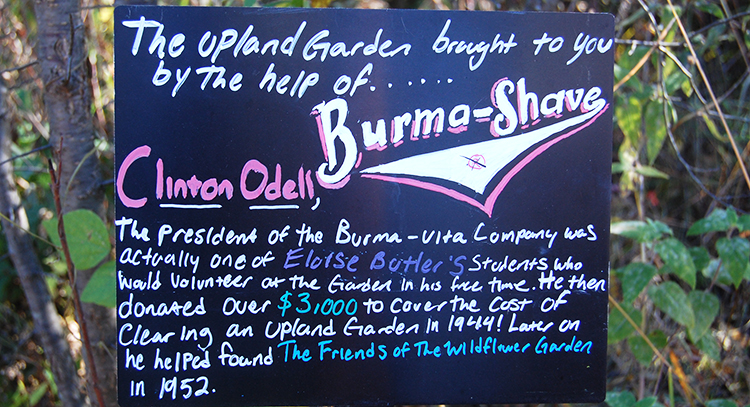 The Upland Garden brought to you
by The help of.......
Burma-Shave
Clinton Odell,
The president of the Burma-Vita Company was
actually one of Eloise Butler's students who
would volunteer at the Garden in his free time. He then
donated over $3,000 to cover the cost of
Clearing an Upland Garden in 1944! Later on
he helped found The Friends of The Wildflower Garden
in 1952.